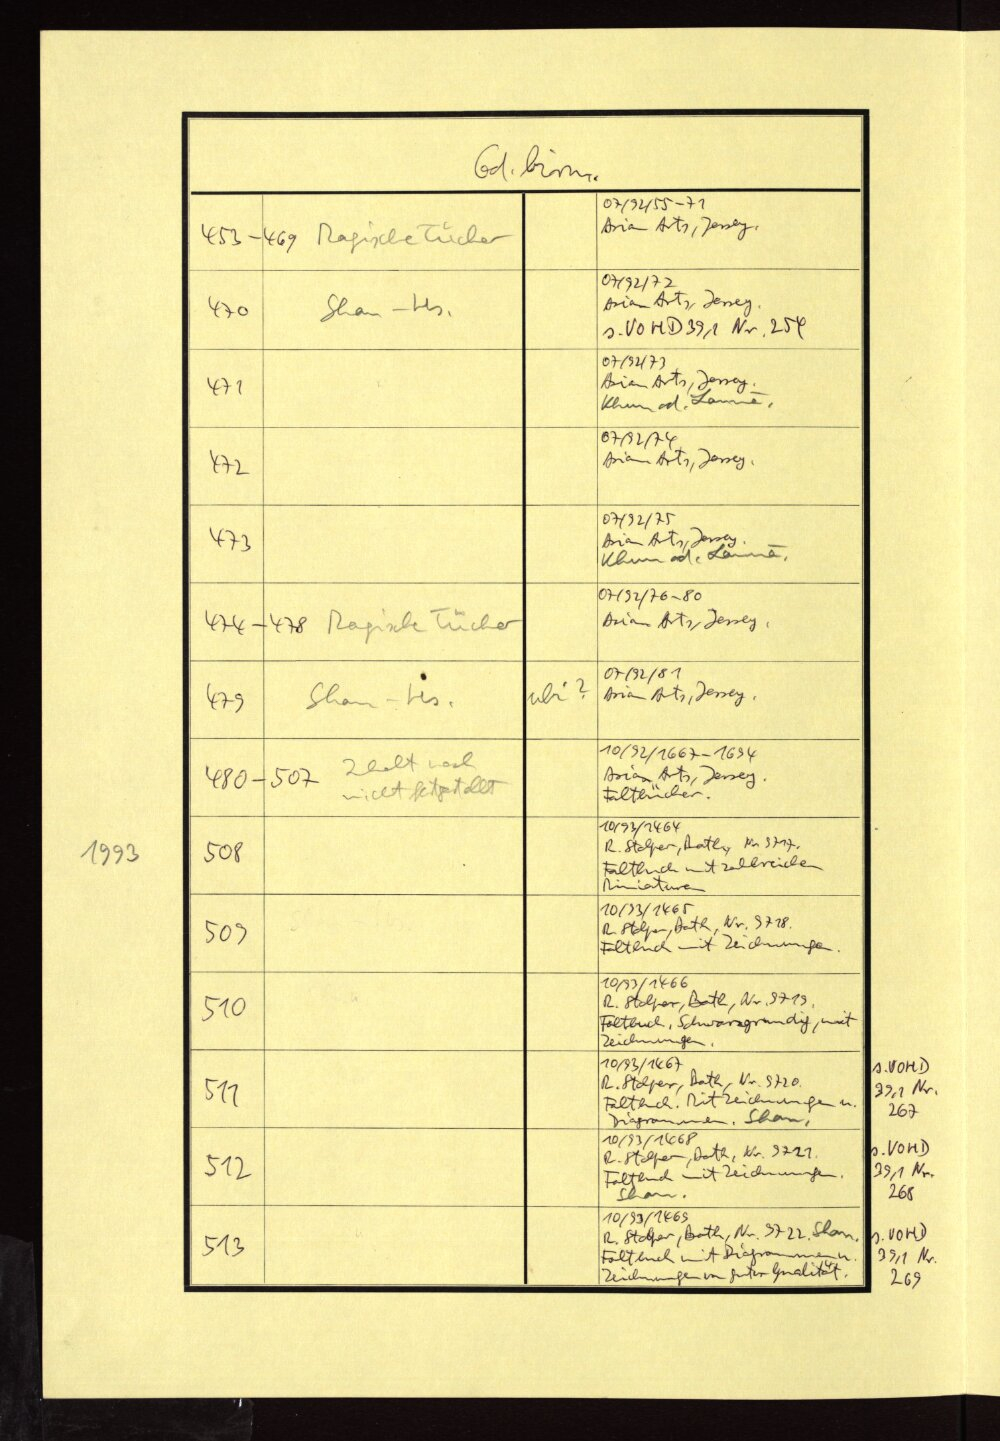 Cod. birm.
453-469 Magische Tücher
07/92/55-71
Asian Arts, Jersey.
470 Shan-Hs.
07/92/72
Asian Arts, Jersey.
s. VOHD 39,1 Nr. 254
471
07/92/73
Asian Arts, Jersey.
Khün od. Lanna.
472
07/92/74
Asian Arts, Jersey.
473
07/92/75
Asian Arts, Jersey.
Khün od. Lanna.
474-478 Magische Tücher
07/92/76-80
Asian Arts, Jersey.
479 Shan-Hs. ubi?
07/92/81
Asian Arts, Jersey.
480-507 Inhalt noch
nicht festgestellt
10/92/1667-1694
Asian Arts, Jersey.
Faltbücher.
1993
508
10/93/1464
R. Stolper, Bath, Nr. 9717.
Faltbuch mit zahlreichen
Miniaturen
509
10/93/1465
R. Stolper, Bath, Nr. 9718.
Faltbuch mit Zeichnungen.
510
10/93/1466
R. Stolper, Bath, Nr. 9719.
Faltbuch. Schwarzgrundig, mit
Zeichnungen.
511
10/93/1467
R. Stolper, Bath, Nr. 9720.
Faltbuch. Mit Zeichnungen u.
Diagrammen. Shan.
s. VOHD
39,1 Nr.
267
512
10/93/1468
R. Stolper, Bath, Nr. 9721.
Faltbuch mit Zeichnungen.
Shan.
s. VOHD
39,1 Nr.
268
513
10/93/1469
R. Stolper, Bath, Nr. 9722. Shan.
Faltbuch mit Diagrammen u.
Zeichnungen von guter Qualität.
s. VOHD
39,1 Nr.
269